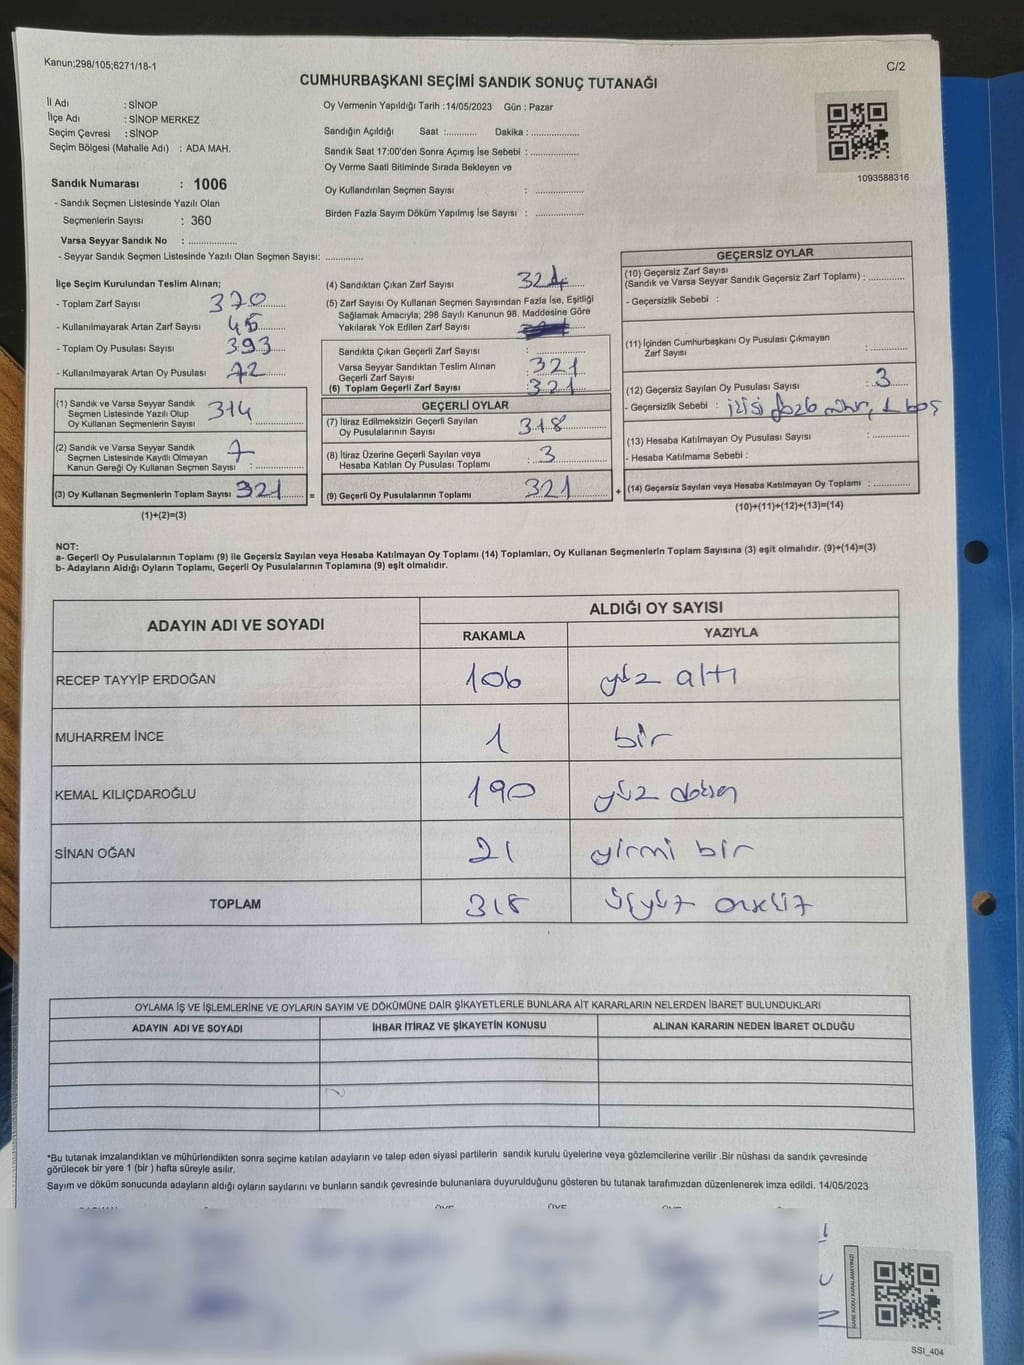 Kanun;298/105;6271/18-1
C/2
CUMHURBAŞKANI SEÇİMİ SANDIK SONUÇ TUTANAĞI
İl Adı : SİNOP
İlçe Adı : SİNOP MERKEZ
Seçim Çevresi : SİNOP
Seçim Bölgesi (Mahalle Adı) : ADA MAH.
Sandık Numarası : 1006
- Sandık Seçmen Listesinde Yazılı Olan
Seçmenlerin Sayısı : 360
Varsa Seyyar Sandık No : ..................
- Seyyar Sandık Seçmen Listesinde Yazılı Olan Seçmen Sayısı: ..............
Oy Vermenin Yapıldığı Tarih :14/05/2023 Gün : Pazar
Sandığın Açıldığı Saat :........... Dakika : ..................
Sandık Saat 17:00'den Sonra Açımış İse Sebebi : ..................
Oy Verme Saati Bitiminde Sırada Bekleyen ve
Oy Kullandırılan Seçmen Sayısı : ..................
Birden Fazla Sayım Döküm Yapılmış İse Sayısı : ..................
1093588316
İlçe Seçim Kurulundan Teslim Alınan;
- Toplam Zarf Sayısı 370
- Kullanılmayarak Artan Zarf Sayısı 45
- Toplam Oy Pusulası Sayısı 393
- Kullanılmayarak Artan Oy Pusulası 72
(1) Sandık ve Varsa Seyyar Sandık
Seçmen Listesinde Yazılı Olup
Oy Kullanan Seçmenlerin Sayısı 314
(2) Sandık ve Varsa Seyyar Sandık
Seçmen Listesinde Kayıtlı Olmayan
Kanun Gereği Oy Kullanan Seçmen Sayısı : 7
(3) Oy Kullanan Seçmenlerin Toplam Sayısı 321 =
(1)+(2)=(3)
(4) Sandıktan Çıkan Zarf Sayısı 324
(5) Zarf Sayısı Oy Kullanan Seçmen Sayısından Fazla İse, Eşitliği
Sağlamak Amacıyla; 298 Sayılı Kanunun 98. Maddesine Göre
Yakılarak Yok Edilen Zarf Sayısı
Sandıkta Çıkan Geçerli Zarf Sayısı : ..................
Varsa Seyyar Sandıktan Teslim Alınan
Geçerli Zarf Sayısı : 321
(6) Toplam Geçerli Zarf Sayısı : 321
GEÇERLİ OYLAR
(7) İtiraz Edilmeksizin Geçerli Sayılan
Oy Pusulalarının Sayısı 318
(8) İtiraz Üzerine Geçerli Sayılan veya
Hesaba Katılan Oy Pusulası Toplamı : 3
(9) Geçerli Oy Pusulalarının Toplamı 321 +
GEÇERSİZ OYLAR
(10) Geçersiz Zarf Sayısı
(Sandık ve Varsa Seyyar Sandık Geçersiz Zarf Toplamı) : ............
- Geçersizlik Sebebi :
(11) İçinden Cumhurbaşkanı Oy Pusulası Çıkmayan
Zarf Sayısı : ............
(12) Geçersiz Sayılan Oy Pusulası Sayısı : 3
- Geçersizlik Sebebi : 1 boş
(13) Hesaba Katılmayan Oy Pusulası Sayısı : ............
- Hesaba Katılmama Sebebi :
(14) Geçersiz Sayılan veya Hesaba Katılmayan Oy Toplamı : ............
(10)+(11)+(12)+(13)=(14)
NOT:
a- Geçerli Oy Pusulalarının Toplamı (9) ile Geçersiz Sayılan veya Hesaba Katılmayan Oy Toplamı (14) Toplamları, Oy Kullanan Seçmenlerin Toplam Sayısına (3) eşit olmalıdır. (9)+(14)=(3)
b- Adayların Aldığı Oyların Toplamı, Geçerli Oy Pusulalarının Toplamına (9) eşit olmalıdır.
ADAYIN ADI VE SOYADI ALDIĞI OY SAYISI
RAKAMLA YAZIYLA
RECEP TAYYİP ERDOĞAN 106 yüz altı
MUHARREM İNCE 1 bir
KEMAL KILIÇDAROĞLU 190 yüz doksan
SİNAN OĞAN 21 yirmi bir
TOPLAM 318 üçyüz onsekiz
OYLAMA İŞ VE İŞLEMLERİNE VE OYLARIN SAYIM VE DÖKÜMÜNE DAİR ŞİKAYETLERLE BUNLARA AİT KARARLARIN NELERDEN İBARET BULUNDUKLARI
ADAYIN ADI VE SOYADI İHBAR İTİRAZ VE ŞİKAYETİN KONUSU ALINAN KARARIN NEDEN İBARET OLDUĞU
*Bu tutanak imzalandıktan ve mühürlendikten sonra seçime katılan adayların ve talep eden siyasi partilerin sandık kurulu üyelerine veya gözlemcilerine verilir .Bir nüshası da sandık çevresinde
görülecek bir yere 1 (bir ) hafta süreyle asılır.
Sayım ve döküm sonucunda adayların aldığı oyların sayılarını ve bunların sandık çevresinde bulunanlara duyurulduğunu gösteren bu tutanak tarafımızdan düzenlenerek imza edildi. 14/05/2023
KARE KODU KARALAMAYINIZ!
SSI_404